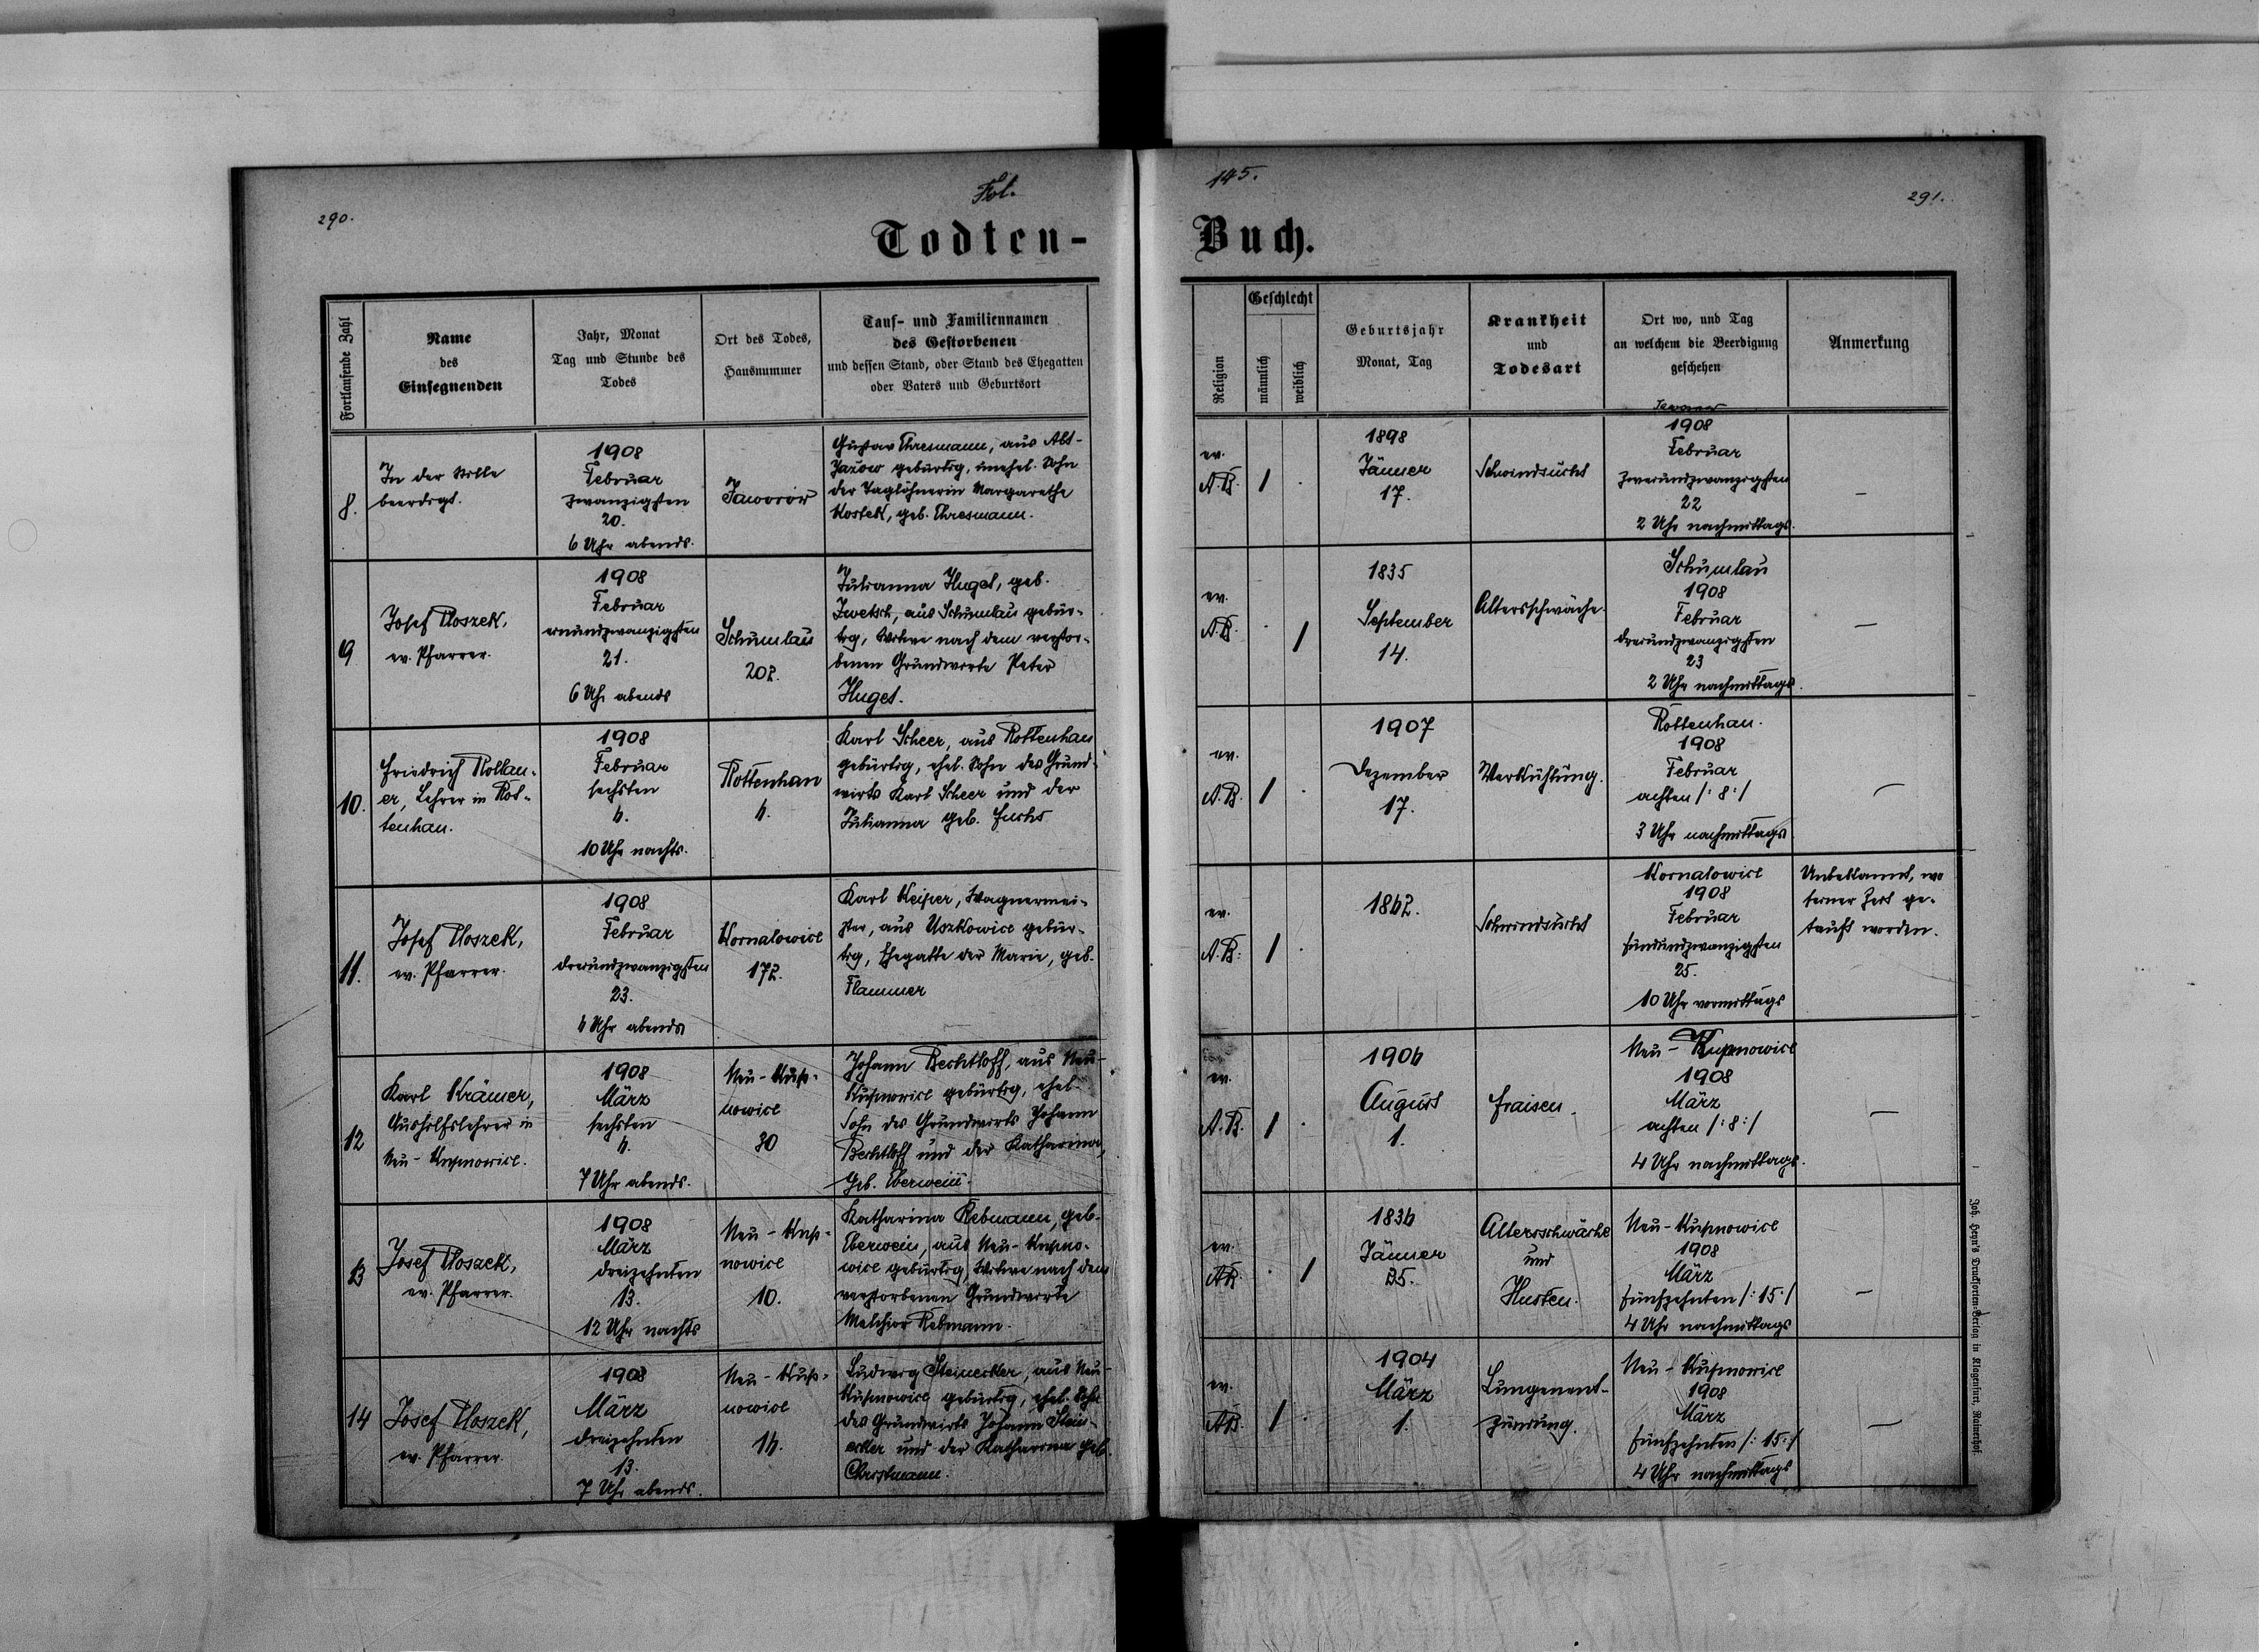 290.
Fol.
145.
291.
Todten-
Buch.
Fortlaufende Zahl
Name
des
Einsegnenden
Jahr, Monat
Tag und Stunde des
Todes
Ort des Todes,
Hausnummer
Tauf- und Familiennamen
des Gestorbenen
und dessen Stand, oder Stand des Ehegatten
oder Vaters und Geburtsort
Religion
Geschlecht
männlich
weiblich
Geburtsjahr
Monat, Tag
Krankheit
und
Todesart
Ort wo, und Tag
an welchem die Beerdigung
geschehen
Anmerkung
8.
In der Stille
beerdigt.
1908
Februar
zwanzigsten
20.
6 Uhr abends.
Jaworów
Gustav Ehresmann, aus Alt-
Jazów gebürtig, unehel. Sohn
der Taglöhnerin Margarethe
Kostek, geb. Ehresmann.
ev.
A.B.
1
1898
Jänner
17.
Schwindsucht
1908
Februar
zweiundzwanzigsten
22
2 Uhr nachmittags.
—
9
Josef Ploszek,
ev. Pfarrer.
1908
Februar
einundzwanzigsten
21.
6 Uhr abends
Schumlau
202.
Julianna Hugel, geb.
Zwetsch, aus Schumlau gebür-
tig, Witwe nach dem verstor-
benen Grundwirte Peter
Hugel.
ev.
A.B.
1
1835
September
14.
Altersschwäche.
Schumlau
1908
Februar
dreiundzwanzigsten
23
2 Uhr nachmittags.
—
10.
Friedrich Rollau-
er, Lehrer in Rot-
tenhan.
1908
Februar
sechsten
6.
10 Uhr nachts.
Rottenhan
6.
Karl Scheer, aus Rottenhan
gebürtig, ehel. Sohn des Grund-
wirts Karl Scheer und der
Julianna geb. Fuchs
ev.
A.B.
1
1907
Dezember
17.
Verkühlung.
Rottenhan.
1908
Februar
achten /: 8 :/
3 Uhr nachmittags
—
11.
Josef Ploszek,
ev. Pfarrer.
1908
Februar
dreiundzwanzigsten
23.
6 Uhr abends
Kornalowice
172.
Karl Keiper, Wagnermei-
ster, aus Uszkowice gebür-
tig, Ehegatte der Marie, geb.
Flammer
ev.
A.B.
1
1862.
Schwindsucht
Kornalowice
1908
Februar
fünfundzwanzigsten
25.
10 Uhr vormittags
Unbekannt, wo
seiner Zeit ge-
tauft worden.
12
Karl Krämer,
Aushilfslehrer in
Neu-Kupnowice.
1908
März
sechsten
6.
7 Uhr abends.
Neu-Kup-
nowice
30
Johann Bechtloff, aus Neu-
Kupnowice gebürtig, ehel.
Sohn des Grundwirts Johann
Bechtloff und der Katharina,
geb. Eberwein.
ev.
A.B.
1
1906
August
1.
Fraisen.
Neu-Kupnowice
1908
März
achten /: 8 :/
4 Uhr nachmittags.
—
13
Josef Ploszek,
ev. Pfarrer.
1908
März
dreizehnten
13.
12 Uhr nachts
Neu-Kup-
nowice
10.
Katharina Rebmann, geb.
Eberwein, aus Neu-Kupno-
wice gebürtig, Witwe nach dem
verstorbenen Grundwirte
Melchior Rebmann.
ev.
A.B.
1
1836
Jänner
25.
Altersschwäche
und
Husten.
Neu-Kupnowice
1908
März
fünfzehnten /: 15 :/
4 Uhr nachmittags
—
14
Josef Ploszek,
ev. Pfarrer.
1908
März
dreizehnten
13.
7 Uhr abends.
Neu-Kup-
nowice
16.
Ludwig Steinecker, aus Neu-
Kupnowice gebürtig, ehel. Sohn
des Grundwirts Johann Stein-
ecker und der Katharina geb.
Christmann.
ev.
A.B.
1
1904
März
1.
Lungenent-
zündung.
Neu-Kupnowice
1908
März
fünfzehnten /: 15 :/
4 Uhr nachmittags
—
Joh. Heyn's Drucksorten-Verlag in Klagenfurt, Rainerhof.